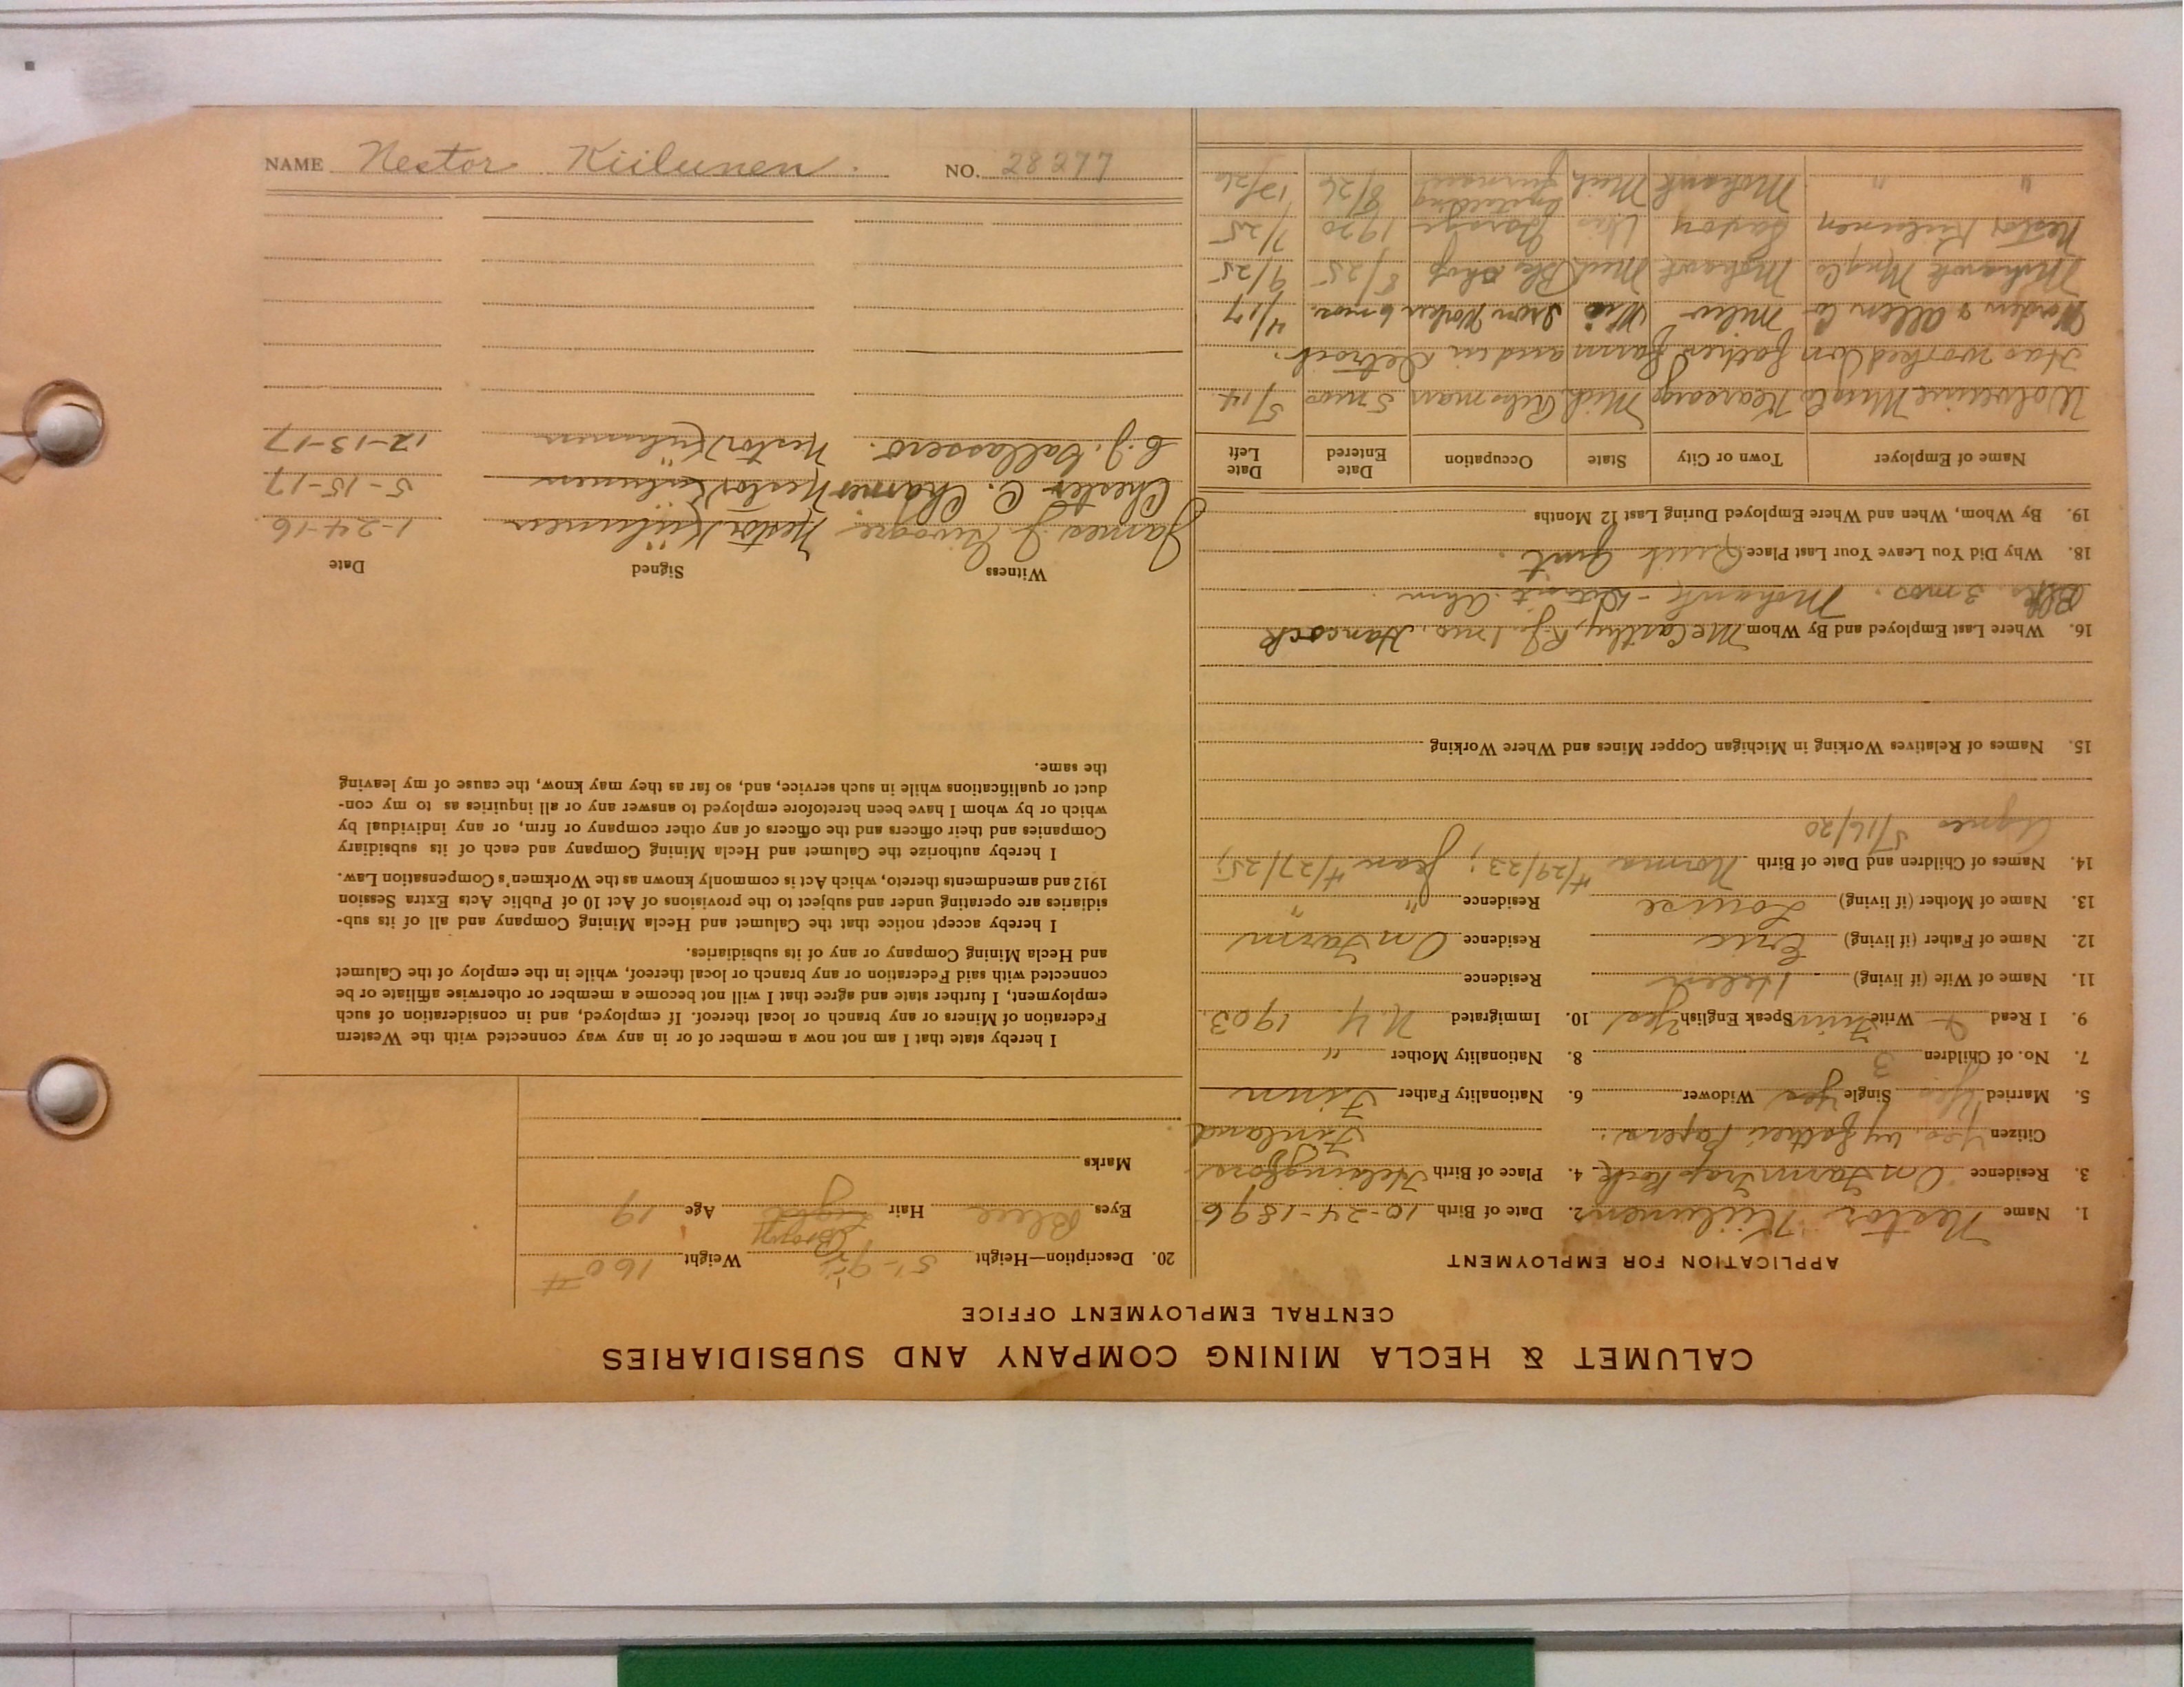 NAME Nestor Kiilunen. NO. 28277
CALUMET & HECLA MINING COMPANY AND SUBSIDIARIES
CENTRAL EMPLOYMENT OFFICE
APPLICATION FOR EMPLOYMENT
1. Name Nestor Kiilunen 2. Date of Birth 10-24-1896
3. Residence On Farm Trap Rock 4. Place of Birth Helsingfors
Citizen Yes, by father Papers. Finland
5. Married Yes Single Yes Widower 6. Nationality Father Finn
7. No. of Children 3 8. Nationality Mother "
9. I Read & Write Finn Speak English Yes 10. Immigrated N.Y. 1903
11. Name of Wife (if living) Helen Residence
12. Name of Father (if living) Eric Residence On Farm
13. Name of Mother (if living) Louise Residence " "
14. Names of Children and Date of Birth Norma 4/29/23; Jean 4/27/25;
Agnes 5/16/20
15. Names of Relatives Working in Michigan Copper Mines and Where Working
16. Where Last Employed and By Whom McCarthy, R.J. 1 mo. Hancock
3 mos. Mohawk -
18. Why Did You Leave Your Last Place Quit
19. By Whom, When and Where Employed During Last 12 Months
Name of Employer Town or City State Occupation Date Entered Date Left
Wolverine Mng Co Kearsarge Mich 5 mos 5/14
Has worked on father farm and in Detroit.
Worden & Allen Co Milw Wis Iron Worker 6 mos. 4/17
Mohawk Mng Co Mohawk Mich Blk Shop 8/25 9/25
Nestor Kiilunen Saxon Wis Garage 1920 7/25
" " Mohawk Mich 8/26 12/26
20. Description—Height 5'-9½" Weight 160#
Brown
Eyes Blue Hair Light Age 19
Marks
I hereby state that I am not now a member of or in any way connected with the Western
Federation of Miners or any branch or local thereof. If employed, and in consideration of such
employment, I further state and agree that I will not become a member or otherwise affiliate or be
connected with said Federation or any branch or local thereof, while in the employ of the Calumet
and Hecla Mining Company or any of its subsidiaries.
I hereby accept notice that the Calumet and Hecla Mining Company and all of its sub-
sidiaries are operating under and subject to the provisions of Act 10 of Public Acts Extra Session
1912 and amendments thereto, which Act is commonly known as the Workmen's Compensation Law.
I hereby authorize the Calumet and Hecla Mining Company and each of its subsidiary
Companies and their officers and the officers of any other company or firm, or any individual by
which or by whom I have been heretofore employed to answer any or all inquiries as to my con-
duct or qualifications while in such service, and, so far as they may know, the cause of my leaving
the same.
Witness Signed Date
James J. Nestor Kiilunen 1-24-16.
Chester C. Nestor Kiilunen 5-15-17
C. J. Vallassero. Nestor Kiilunen 12-13-17